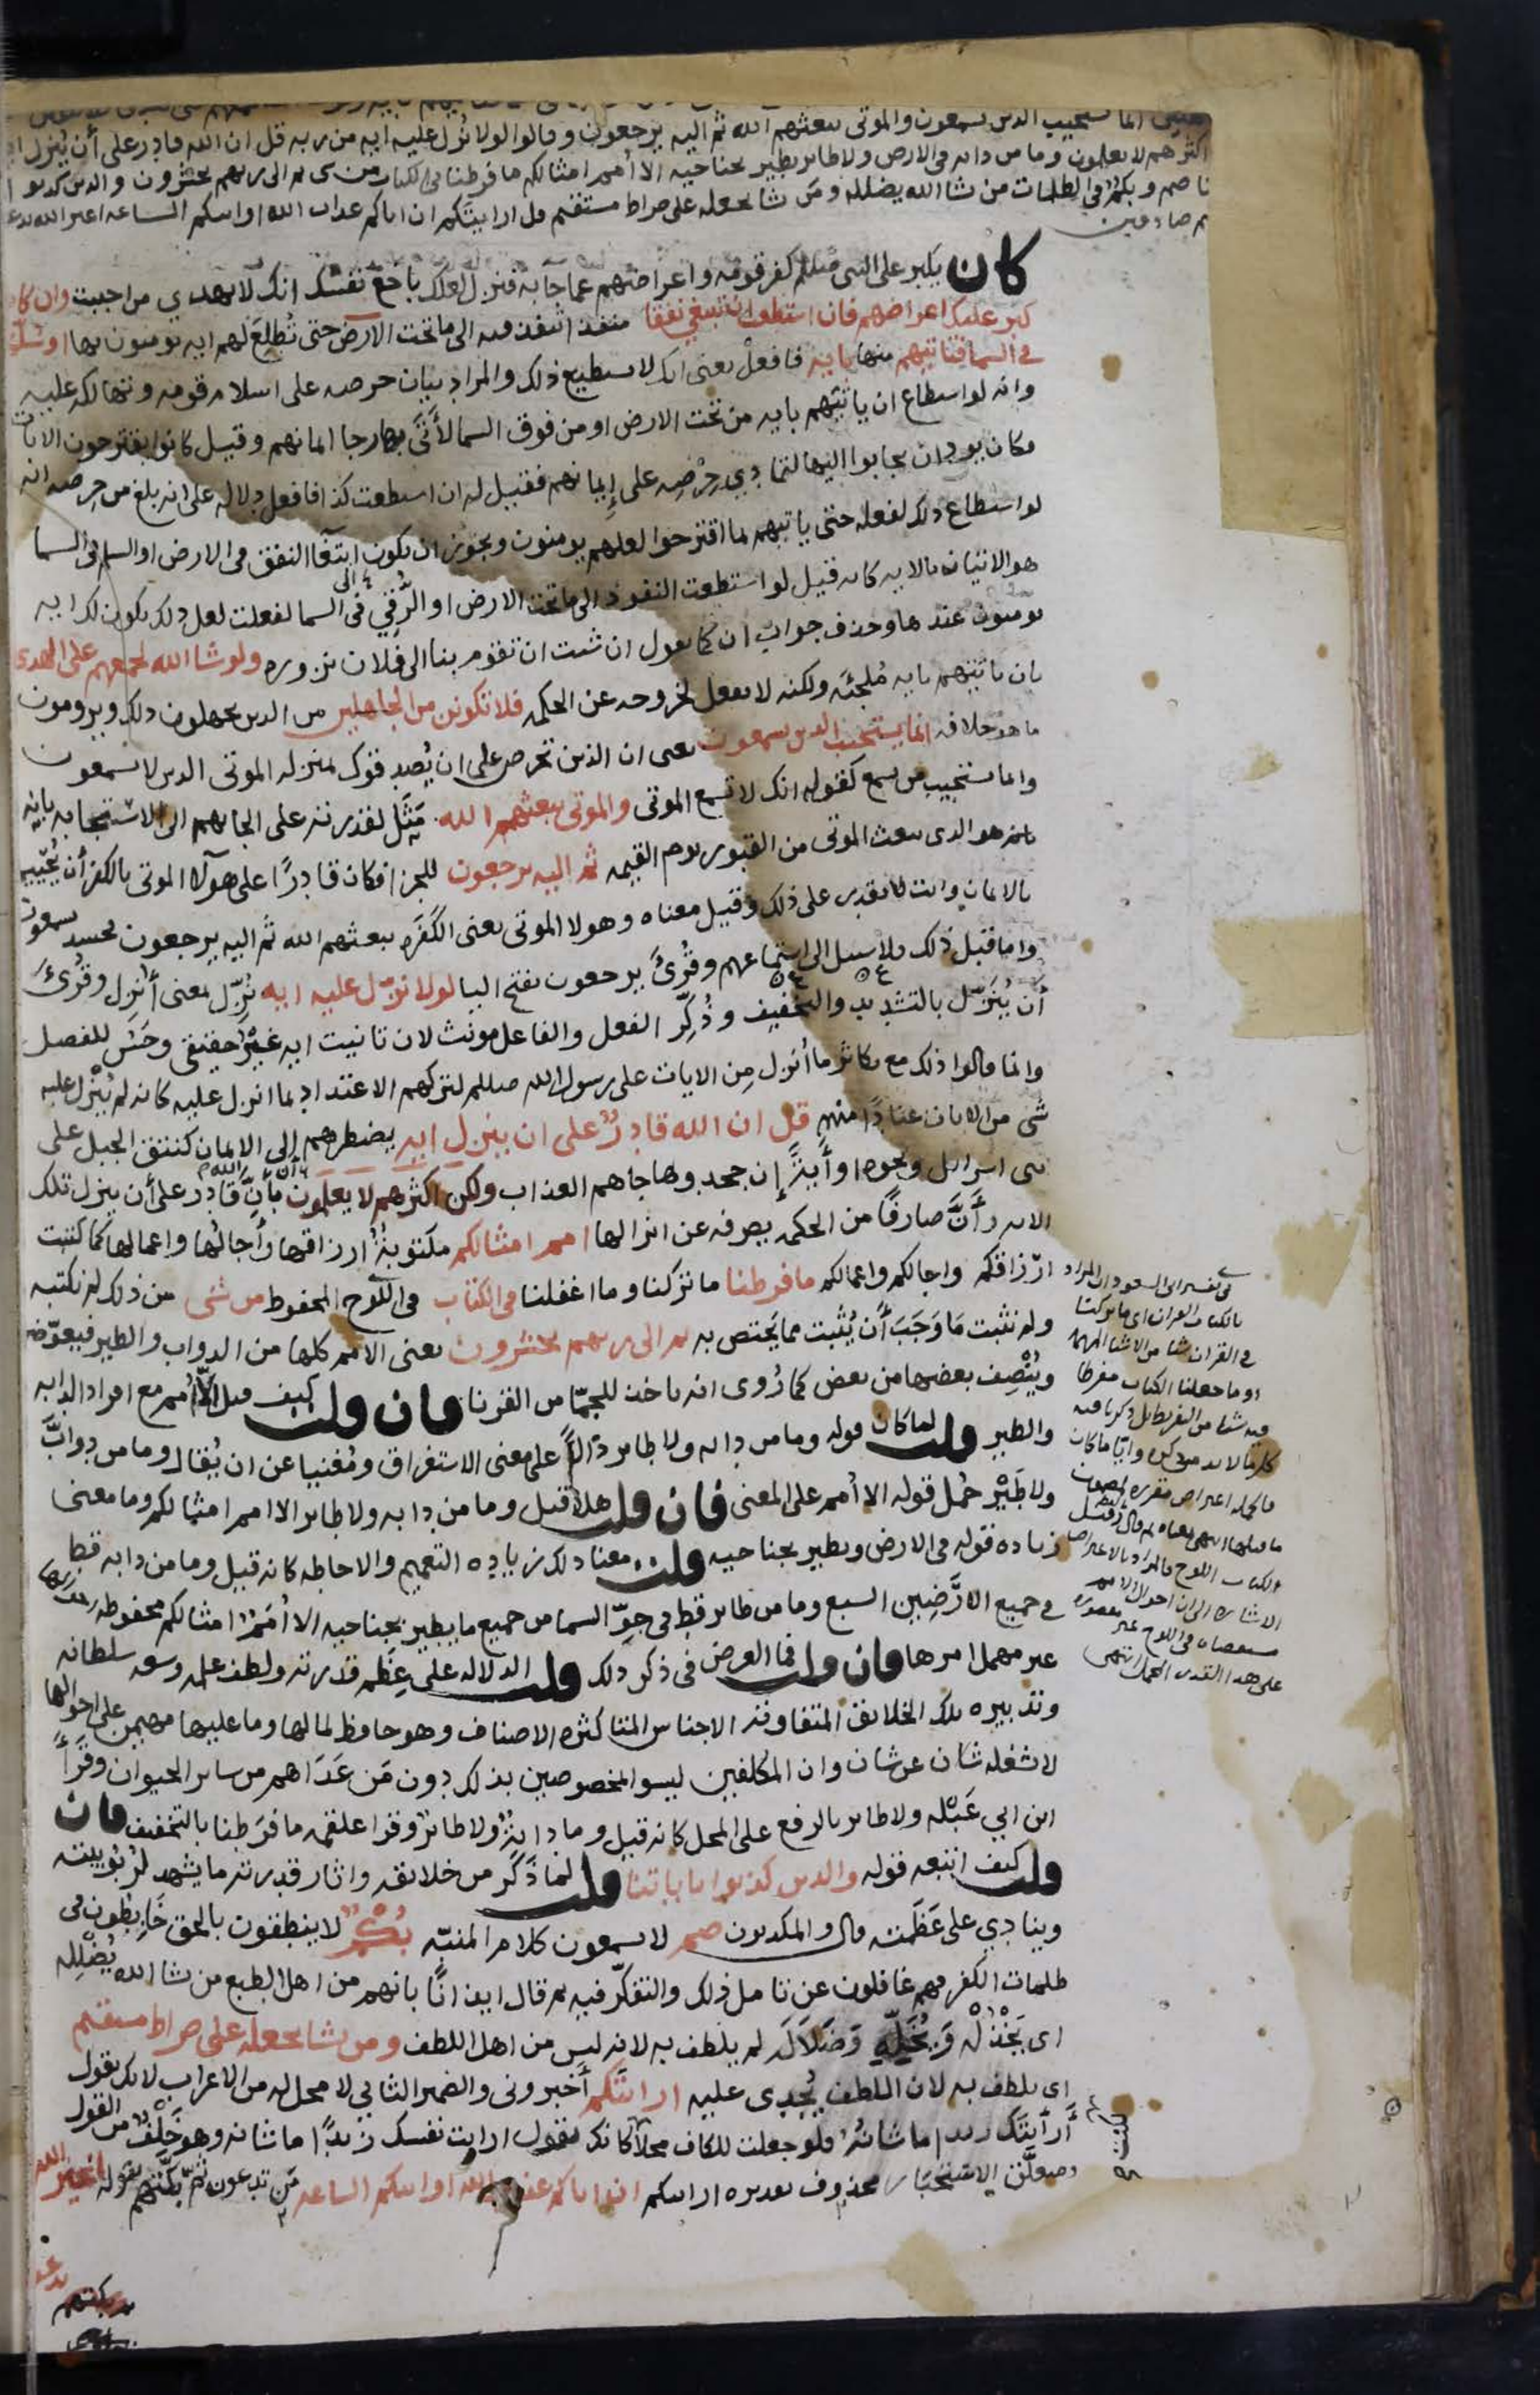 انما يستجيب الدين يسمعون والموتى يبعثهم الله ثم اليه يرجعون وقالوا لولا نُزل عليه ايه من ربه قل ان الله قادر على أن يُنزل
اكثرهم لا يعلمون وما من دابه في الارض ولا طاير يطير بجناحيه الا أمم امثالكم ما فرطنا في الكتاب من شى ثم الى ربهم يحشرون والدين كدبوا
صم وبكمٌ في الظلمات من يشا الله يضلله ومَن يشا يجعله على صراط مستقيم قل ارايتَكم ان اتاكم عذاب الله او اتتكم الساعه اغير الله تدعو
م صادقين
كان يكبر على النبي صللم كفر قومه واعراضهم عما جآ به فنزل لعلك باخع نفسك انك لا تهدي من احببت وان كان
كبر عليك اعراضهم فان استطعت ان تبتغي نفقا منفذا تنفذ فيه الى ما تحت الارض حتى تُطلِعَ لهم ايه يومنون بها او سُلّما
في السما فتاتيهم منها بايه فافعلْ يعنى انك لا تستطيع ذلك والمراد بيان حرصه على اسلام قومه وتهالكه عليه
وانه لو استطاع ان ياتيهم بايه من تحت الارض او من فوق السما لأَتَى بها رجا ايمانهم وقيل كانوا يقترحون الايات
فكان يود ان يجابوا اليها لتمادي حِرْصِه على إيمانهم فقيل له ان استطعت كذا فافعل دلاله على انه بلغ من حرصه انه
لو استطاع ذلك لفعله حتى ياتيهم بما اقترحوا لعلهم يومنون ويجوز ان يكون ابتغآ النفق في الارض او السلم في السما
هو الاتيان بالايه كانه قيل لو استطعت النفوذ الى ما تحت الارض او الرُّقِي في السما لفعلت لعل ذلك يكون لك ايه
يومنون عندها وحذف جواب ان كما تقول ان شئت ان تقوم بنا الى فلان نزوره ولو شا الله لجمعهم على الهدى
بان ياتيهم بايه مُلجئَه ولكنه لا يفعل لخروجه عن الحكمه فلا تكونن من الجاهلين من الدين يجهلون دلك ويرومون
ما هو خلافه انما يستجيب الدين يسمعون يعنى ان الذين تحرص على ان يُصدقوك بمنزله الموتى الدين لا يسمعون
وانما يستجيب من يسمع كقوله انك لا تسمع الموتى والموتى يبعثهم الله مَثَل لقدرته على الجايهم الى الاستجابه بانه
هو الدى يبعث الموتى من القبور يوم القيمه ثم اليه يرجعون للجزا فكان قادرًا على هولآ الموتى بالكفر أن يُحْيِيهم
بالايمان وانت لا تقدر على ذلك وقيل معناه وهولا الموتى يعنى الكَفَره يبعثهم الله ثم اليه يرجعون فحينئذ يسمعون
واما قبل ذلك فلا سبيل الى استماعهم وقُرئَ يرجعون بفتح اليا لولا نزّل عليه ايه نُزِّل بمعنى أُنزِل وقُرِئَ
أن يُنَزّل بالتشديد والتخفيف وذُكِّر الفعل والفاعل مونث لان تانيث ايه غيرُ حقيقي وحَسُن للفصل
وانما قالوا ذلك مع تكاثر ما أُنزل مِن الايات على رسول الله صللم لتركهم الاعتداد بما انزل عليه كانه لم يُنْزل عليه
شى من الايات عنادًا منهم قل ان الله قادرٌ على ان ينزل ايه يضطرهم إلى الايمان كنتق الجبل على
بنى اسرايل ونحوه او أيةً إن جحدوها جاهم العذاب ولكن اكثرهم لا يعلمون أنَّ الله قادر على أن ينزل تلك
الايه وأَنَّ صارفًا من الحكمه يصرفه عن انزالها امم امثالكم مكتوبةٌ ارزاقها وأجالُها واعمالها كما كتبت
ارزاقكم واجالكم واعمالكم ما فرطنا ما تركنا وما اغفلنا في الكتاب في اللوح المحفوظ من شى من ذلك لم نكتبه
ولم نثبت مَا وَجَبَ أن يُثبت مما يختص به ثم الى ربهم يحشرون يعنى الامم كلها من الدواب والطير فيعوّضها
ويُنْصِف بعضها من بعض كما رُوى انه ياخذ للجمّا من القرنا فان قلت كيف قيل إلاّ أُمم مع افراد الدابه
والطير قلت لما كان قوله وما من دابه ولا طاير دالاًّ على معنى الاستغراق ومُغنيا عن ان يُقال وما من دوابَّ
ولا طَيْرٍ حُمل قوله الا أُمم على المعنى فان قلت هلاّ قيل وما من دابه ولا طاير الا امم امثالكم وما معنى
زياده قوله في الارض ويطير بجناحيه قلت معنا دلك زياده التعميم والاحاطه كانه قيل وما من دابه قط
في جميع الارَضِين السبع وما من طاير قط في جوّ السما من جميع ما يطير بجناحيه الا أُممٌ امثالكم محفوظه احوالها
غير مهمل امرها فان قلت فما الغرض في ذكر دلك قلت الدلاله على عِظَم قدرته ولطف علمه وسعه سلطانه
وتدبيره تلك الخلايق المتفاوته الاجناس المتكاثره الاصناف وهو حافظ لما لها وما عليها مهيمن على احوالها
لا يشغله شان عن شان وان المكلفين ليسوا بمخصوصين بذلك دون مَن عَدَاهم من ساير الحيوان وقرَأَ
ابن ابي عَبْله ولا طاير بالرفع على المحل كانه قيل وما دابةٌ ولا طايرٌ وقرا علقمه ما فرَطنا بالتخفيف فان
قلت كيف اتبعه قوله والدين كذبوا باياتنا قلت لما ذَكَر من خلايقه واثار قدرته ما يشهد لرُبُوبيته
وينادِي على عَظَمته قال والمكدبون صم لا يسمعون كلام المنبّه بُكْمٌ لا ينطقون بالحق خَابِطُون في
ظلمات الكفر فهم غافلون عن تامل ذلك والتفكّر فيه ثم قال ايذانًا بانهم من اهل الطبع من يشا الله يُضْلله
اى يَخْذُلْه وَيُخَلِّهِ وَضَلاَلَه لم يلطف به لانه ليس من اهل اللطف ومن يشا يجعله على صراط مستقيم
اى يلطف به لان اللطف يُجدِى عليه ارايتكم أَخبرونى والضمير الثاني لا محل له من الاعراب لانك تقول
أَرأَيتَك زيدا ما شانُه فلو جعلت للكاف محلاً لكانك تقول ارايت نفسك زيدًا ما شانه وهو خَلْفٌ من القول
ومتعلَّق الاستخبار محذوف تقديره ارايتكم ان اتاكم عذاب الله او اتتكم الساعه مَن تدعون ثم بكَّتهم بقوله اغير الله
في تفسير ابى السعود ان المراد
بالكتاب القران اى ما تركنا
في القران شيا من الاشيا المهمه